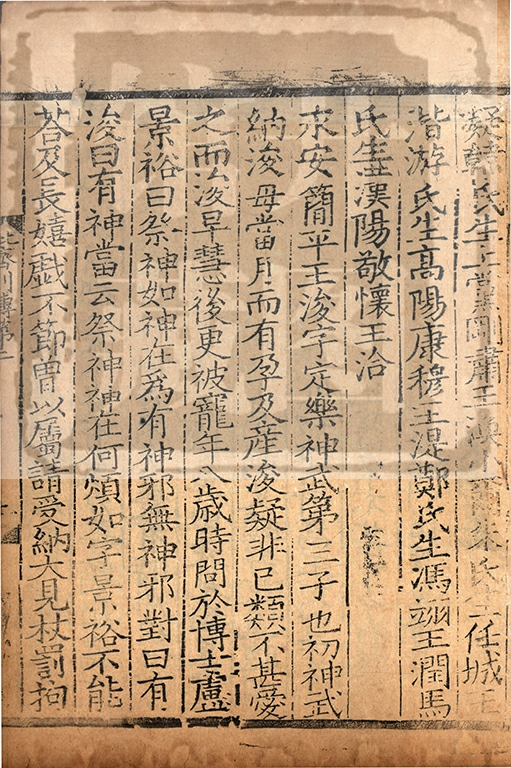 凝韓氏生上黨剛肅王渙小尒朱氏生任城王
湝游氏生高陽康穆王湜鄭氏生馮翊王潤馬
氏生漢陽敬懷王洽
永安簡平王浚字定樂神武第三子也初神武
納浚母當月而有孕及產浚疑非己類不甚愛
之而浚早慧後更被寵年八歲時問於博士盧
景裕曰祭神如神在為有神邪無神邪對曰有
浚曰有神當云祭神神在何煩如字景裕不能
荅及長嬉戲不節曾以屬請受納大見杖罰拘